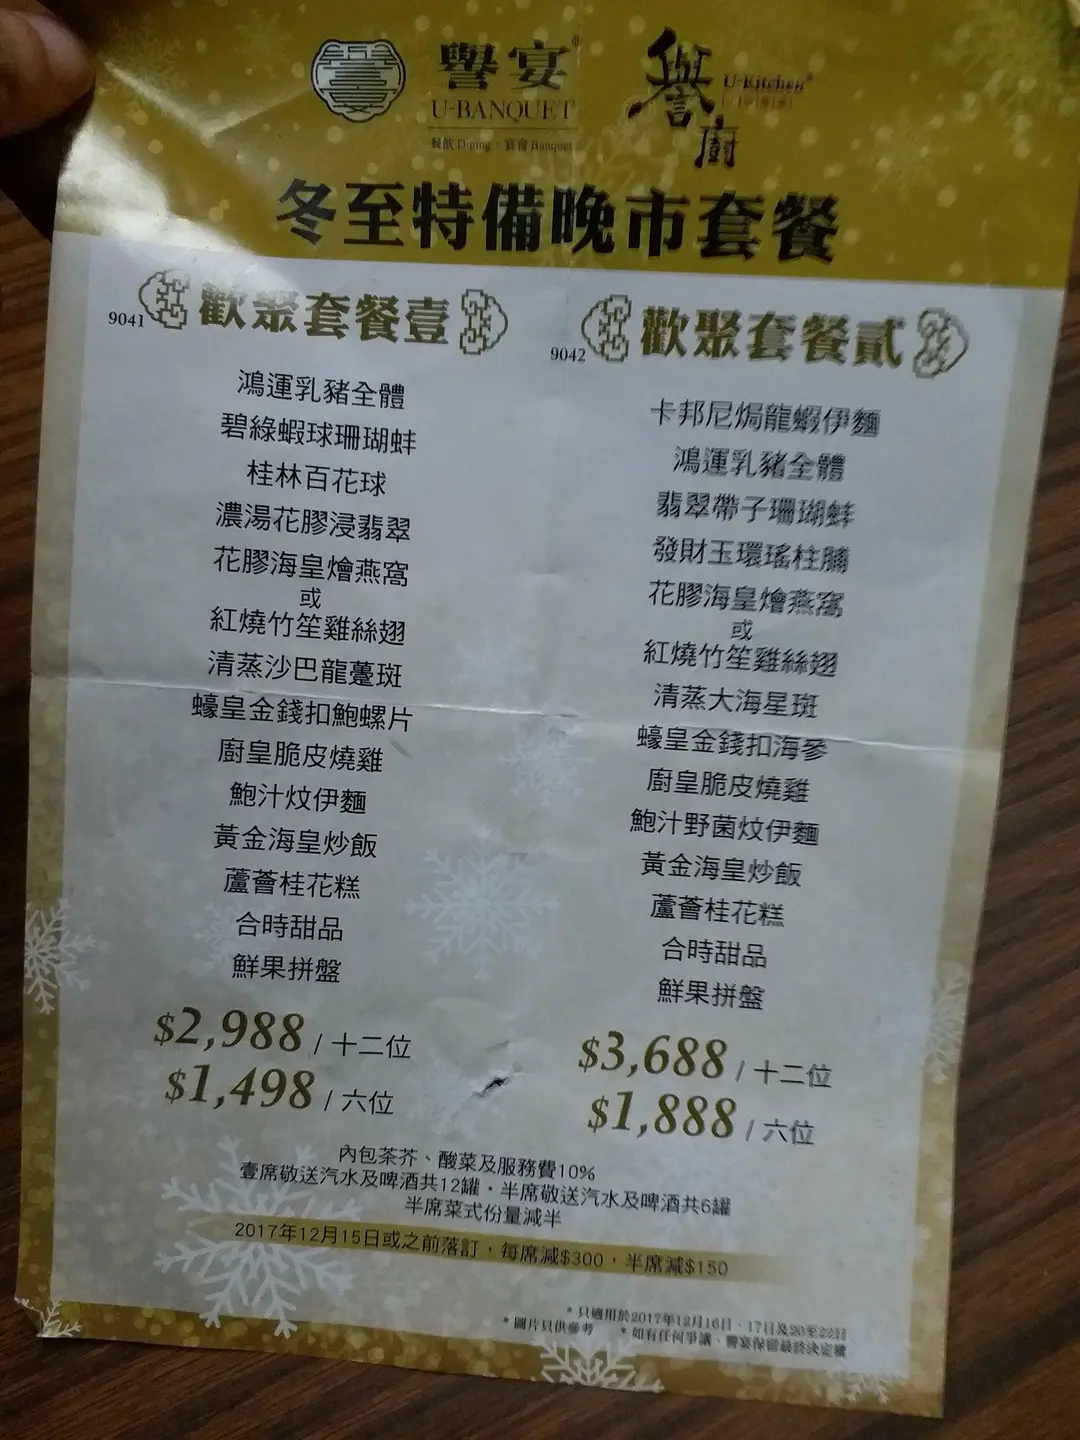 譽宴
U-BANQUET
餐飲 Dining · 宴會 Banquet
譽廚
U-Kitchen
冬至特備晚市套餐
9041
歡聚套餐壹
鴻運乳豬全體
碧綠蝦球珊瑚蚌
桂林百花球
濃湯花膠浸翡翠
花膠海皇燴燕窩
或
紅燒竹笙雞絲翅
清蒸沙巴龍躉斑
蠔皇金錢扣鮑螺片
廚皇脆皮燒雞
鮑汁炆伊麵
黃金海皇炒飯
蘆薈桂花糕
合時甜品
鮮果拼盤
$2,988 / 十二位
$1,498 / 六位
9042
歡聚套餐貳
卡邦尼焗龍蝦伊麵
鴻運乳豬全體
翡翠帶子珊瑚蚌
發財玉環瑤柱脯
花膠海皇燴燕窩
或
紅燒竹笙雞絲翅
清蒸大海星斑
蠔皇金錢扣海參
廚皇脆皮燒雞
鮑汁野菌炆伊麵
黃金海皇炒飯
蘆薈桂花糕
合時甜品
鮮果拼盤
$3,688 / 十二位
$1,888 / 六位
內包茶芥、酸菜及服務費10%
壹席敬送汽水及啤酒共12罐，半席敬送汽水及啤酒共6罐
半席菜式份量減半
2017年12月15日或之前落訂，每席減$300，半席減$150
* 只適用於2017年12月16日、17日及20至22日
* 圖片只供參考 * 如有任何爭議，譽宴保留最終決定權